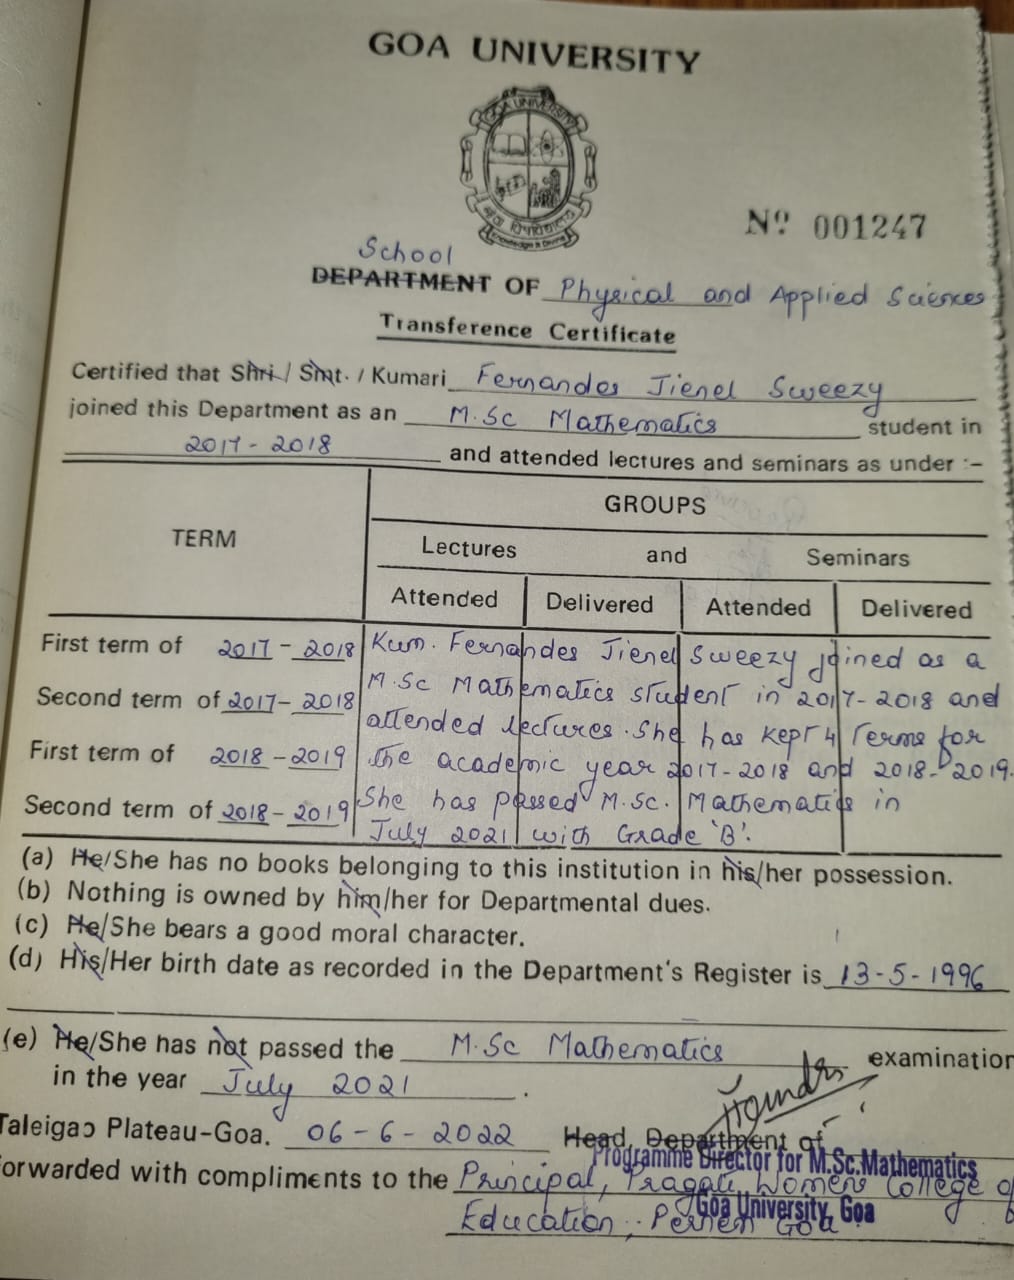 GOA UNIVERSITY
GOA UNIVERSITY
Knowledge is Divine
Nº 001247
School
DEPARTMENT OF Physical and Applied Sciences
Transference Certificate
Certified that Shri / Smt. / Kumari Fernandes Jienel Sweezy
joined this Department as an M.Sc Mathematics student in
2017 - 2018 and attended lectures and seminars as under :-
TERM
GROUPS
Lectures and Seminars
Attended Delivered Attended Delivered
First term of 2017 - 2018 Kum. Fernandes Jienel Sweezy joined as a
Second term of 2017 - 2018 M.Sc Mathematics student in 2017-2018 and
attended lectures. She has kept 4 Terms for
First term of 2018 - 2019 the academic year 2017-2018 and 2018-2019.
Second term of 2018 - 2019 She has passed M.Sc. Mathematics in
July 2021 with Grade 'B'.
(a) He/She has no books belonging to this institution in his/her possession.
(b) Nothing is owned by him/her for Departmental dues.
(c) He/She bears a good moral character.
(d) His/Her birth date as recorded in the Department's Register is 13-5-1996
(e) He/She has not passed the M.Sc Mathematics examination
in the year July 2021 .
Taleigao Plateau-Goa. 06-6-2022 Head, Department of
Programme Director for M.Sc. Mathematics
orwarded with compliments to the Principal, Pragati Women's College of
Goa University, Goa
Education, Pernem Goa